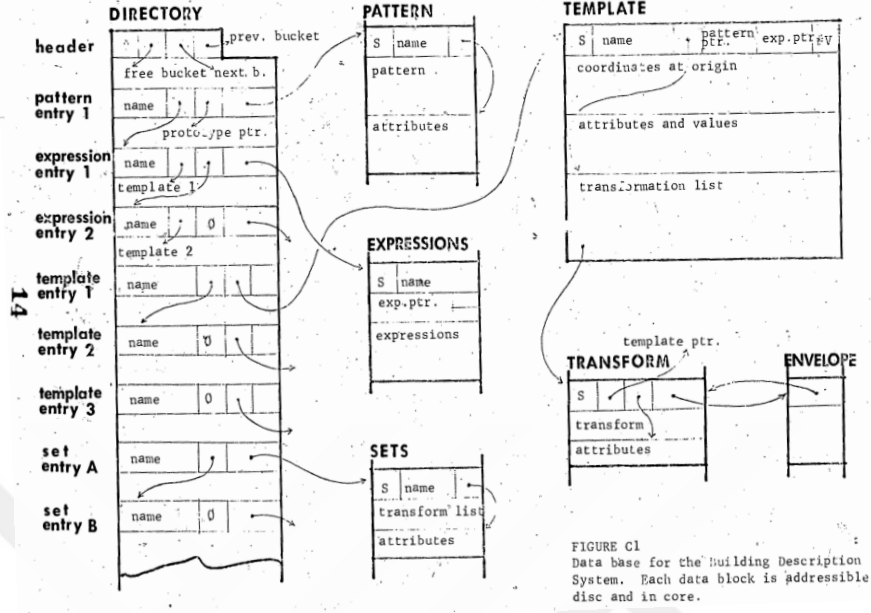 DIRECTORY
header
prev. bucket
free bucket next. b.
pattern
entry 1
name
prototype ptr.
expression
entry 1
name
template 1
expression
entry 2
name 0
template 2
template
entry 1
name
template
entry 2
name 0
template
entry 3
name 0
set
entry A
name
set
entry B
name 0
14
PATTERN
S name
pattern
attributes
EXPRESSIONS
S name
exp.ptr.
expressions
SETS
S name
transform list
attributes
TEMPLATE
S name pattern ptr. exp.ptr
coordinates at origin
attributes and values
transformation list
template ptr.
TRANSFORM
S
transform
attributes
ENVELOPE
FIGURE C1
Data base for the Building Description
System. Each data block is addressible
disc and in core.